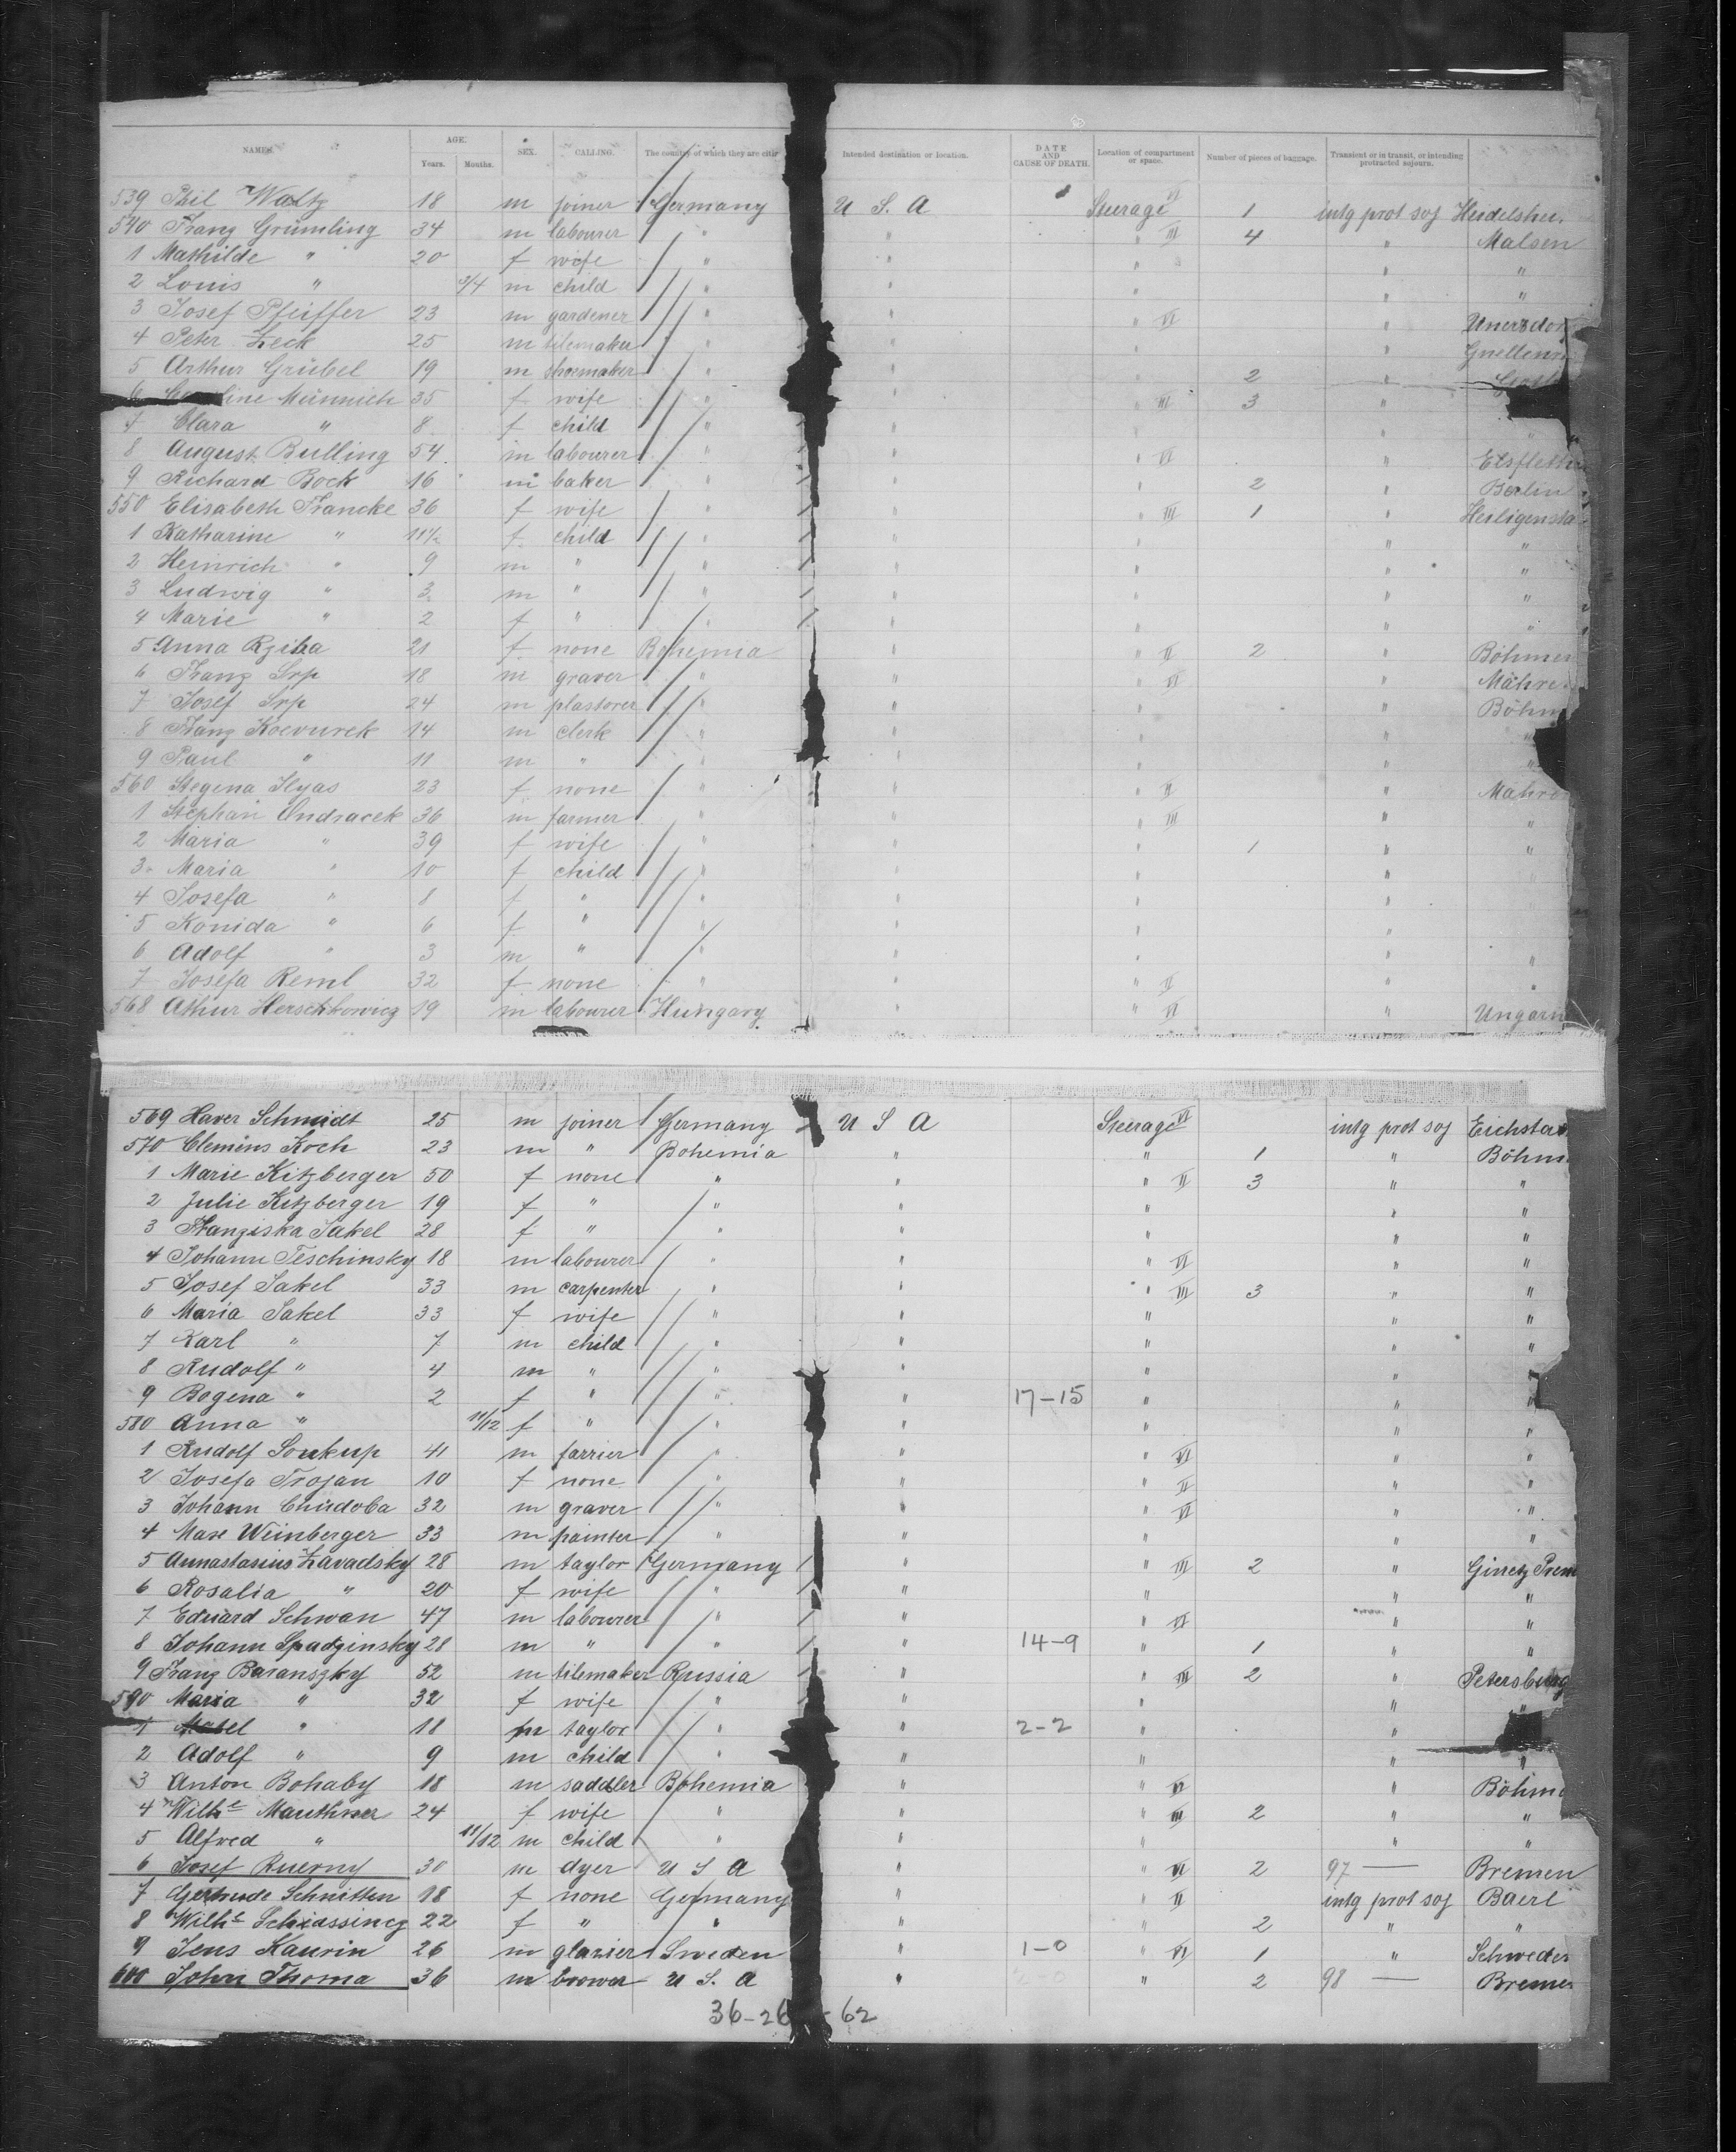 NAMES. AGE. Years. Months. SEX. CALLING. The country of which they are citiz Intended destination or location. DATE AND CAUSE OF DEATH. Location of compartment or space. Number of pieces of baggage. Transient or in transit, or intending protracted sojourn.
539 Phil Waltz 18 m joiner Germany U S. A Steerage VI 1 intg prot soj Heidelshei.
540 Franz Grümling 34 m labourer " " " III 4 " Malsen
1 Mathilde " 20 f wife " " " " "
2 Louis " 3/4 m child " " " " "
3 Josef Pfeiffer 23 m gardener " " " VI "
4 Peter Zeck 25 m tilemaker " " " "
5 Arthur Grübel 19 m shoemaker " " " 2 "
6 Münnich 35 f wife " " " III 3 "
7 Clara " 8 f child " " " " "
8 August Bulling 54 m labourer " " " VI " Elsfleth
9 Richard Bock 16 m baker " " " 2 " Berlin
550 Elisabeth Francke 36 f wife " " " III 1 " Heiligensta
1 Katharine " 11½ f child " " " " "
2 Heinrich " 9 m " " " " " "
3 Ludwig " 3 m " " " " " "
4 Marie " 2 f " " " " " "
5 Anna Rziha 21 f none Bohemia " " II 2 " Böhmen
6 Franz Srp 18 m graver " " " VI " Mähre
7 Josef Srp 24 m plasterer " " " " Böhm
8 Franz Kocvurek 14 m clerk " " " " "
9 Paul " 11 m " " " " " "
560 Stegena Ilyas 23 f none " " " II " Mähre
1 Stephan Ondracek 36 m farmer " " " III " "
2 Maria " 39 f wife " " " 1 " "
3 Maria " 10 f child " " " "
4 Josefa " 8 f " " " " "
5 Konida " 6 f " " " " "
6 Adolf " 3 m " " " " " "
7 Josefa Reml 32 f none " " " II " "
568 Athur Herschkowicz 19 m labourer Hungary " " VI " Ungarn
569 Haver Schmidt 25 m joiner Germany U S A Steerage VI intg prot soj Eichsta
570 Clemens Koch 23 m " Bohemia " " 1 " Böhm
1 Marie Kitzberger 50 f none " " " II 3 " "
2 Julie Kitzberger 19 f " " " " " "
3 Franziska Jakel 28 f " " " " " "
4 Johann Teschinsky 18 m labourer " " " VI " "
5 Josef Jakel 33 m carpenter " " " III 3 " "
6 Maria Jakel 33 f wife " " " " "
7 Karl " 7 m child " " " " "
8 Rudolf " 4 m " " " " " "
9 Bogena " 2 f " " " 17-15 " " "
580 Anna " 11/12 f " " " " " "
1 Rudolf Soukup 41 m farrier " " " VI " "
2 Josefa Trojan 10 f none " " " II " "
3 Johann Chudoba 32 m graver " " " VI " "
4 Max Weinberger 33 m painter " " " " "
5 Annastasius Zavadsky 28 m taylor Germany " " III 2 "
6 Rosalia " 20 f wife " " " " "
7 Eduard Schwan 47 m labourer " " " VI " "
8 Johann Spadzinsky 28 m " " " 14-9 " 1 " "
9 Franz Baranszky 52 m tilemaker Russia " " III 2 " Petersburg
590 Maria " 32 f wife " " " " "
1 " 18 m taylor " " 2-2 " "
2 Adolf " 9 m child " " " " "
3 Anton Bohaby 18 m saddler Bohemia " " VI " Böhm
4 Wilhe Mauthner 24 f wife " " " III 2 " "
5 Alfred " 11/12 m child " " " " "
6 Josef Ruerny 30 m dyer U S A " " VI 2 97 — Bremen
7 Gertrude Schnitten 18 f none Germany " " II intg prot soj Baerl
8 Wilhe Schiassincz 22 f " " " " 2 " "
9 Jens Kaurin 26 m glazier Sweden " 1-0 " VI 1 " Schweden
600 John Thoma 36 m brower U S. A " " 2 98 — Bremen
36-26 - 62